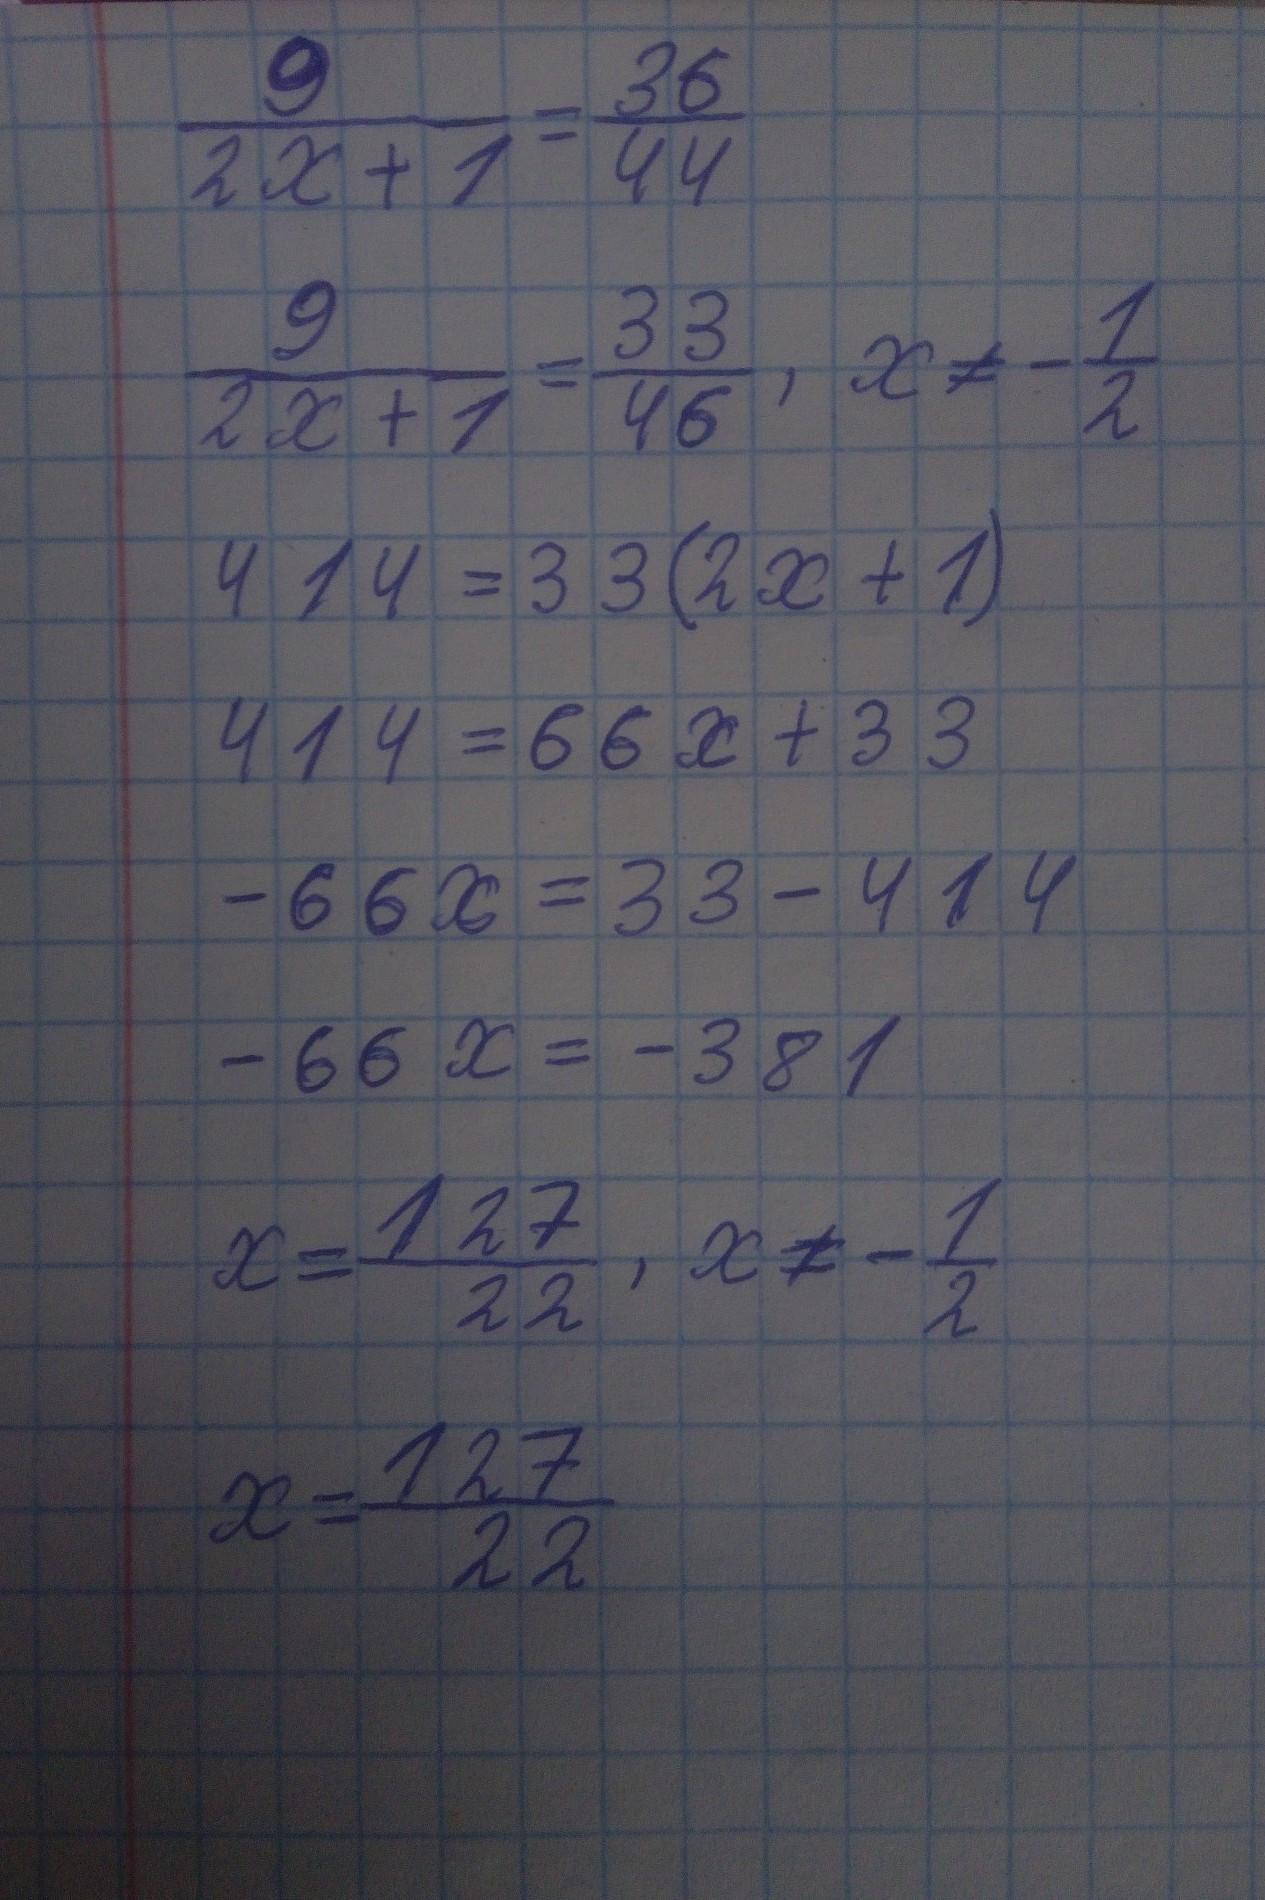 9/(2x+1) = 36/44
9/(2x+1) = 33/46, x ≠ -1/2
414 = 33(2x+1)
414 = 66x+33
-66x = 33-414
-66x = -381
x = 127/22, x ≠ -1/2
x = 127/22